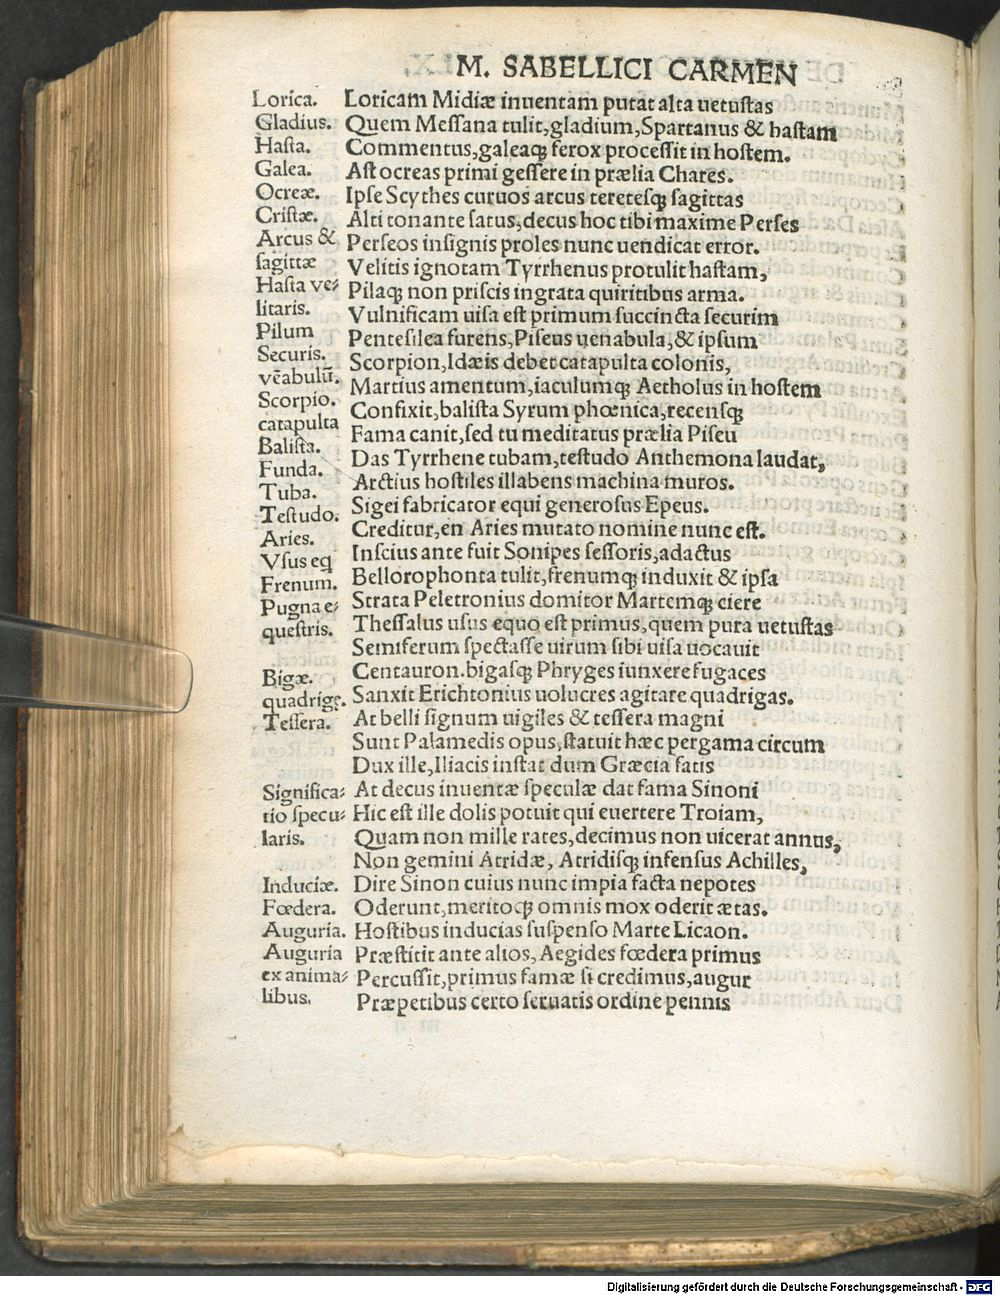 M. SABELLICI CARMEN
Lorica. Loricam Midiæ inuentam putat alta uetuſtas
Gladius. Quem Meſſana tulit,gladium,Spartanus & haſtam
Haſta. Commentus,galeaqꝫ ferox proceſſit in hoſtem.
Galea. Aſt ocreas primi geſſere in prælia Chares.
Ocreæ. Ipſe Scythes curuos arcus tereteſqꝫ ſagittas
Criſtæ. Alti tonante ſatus,decus hoc tibi maxime Perſes
Arcus & Perſeos inſignis proles nunc uendicat error.
ſagittæ Velitis ignotam Tyrrhenus protulit haſtam,
Haſta ve⸗ Pilaqꝫ non priſcis ingrata quiritibus arma.
litaris. Vulnificam uiſa eſt primum ſuccincta ſecurim
Pilum Penteſilea furens,Piſeus uenabula,& ipſum
Securis. Scorpion,Idæis debet catapulta colonis,
vēabulū. Martius amentum,iaculumqꝫ Aetholus in hoſtem
Scorpio. Confixit,baliſta Syrum phœnica,recenſqꝫ
catapulta Fama canit,ſed tu meditatus prælia Piſeu
Baliſta. Das Tyrrhene tubam,teſtudo Anthemona laudat,
Funda. Arctius hoſtiles illabens machina muros.
Tuba. Sigei fabricator equi generoſus Epeus.
Teſtudo. Creditur,en Aries mutato nomine nunc eſt.
Aries. Inſcius ante fuit Sonipes ſeſſoris,adactus
Vſus eq Bellorophonta tulit,frenumqꝫ induxit & ipſa
Frenum. Strata Peletronius domitor Martemqꝫ ciere
Pugna e⸗ Theſſalus uſus equo eſt primus,quem pura uetuſtas
queſtris. Semiferum ſpectaſſe uirum ſibi uiſa uocauit
Bigæ. Centauron.bigaſqꝫ Phryges iunxere fugaces
quadrigę. Sanxit Erichtonius uolucres agitare quadrigas.
Teſſera. At belli ſignum uigiles & teſſera magni
Sunt Palamedis opus,ſtatuit hæc pergama circum
Dux ille,Iliacis inſtat dum Græcia fatis
Significa⸗ At decus inuentæ ſpeculæ dat fama Sinoni
tio ſpecu⸗ Hic eſt ille dolis potuit qui euertere Troiam,
laris. Quam non mille rates,decimus non uicerat annus,
Non gemini Atridæ, Atridiſqꝫ infenſus Achilles,
Induciæ. Dire Sinon cuius nunc impia facta nepotes
Fœdera. Oderunt,meritoqꝫ omnis mox oderit ætas.
Auguria. Hoſtibus inducias ſuſpenſo Marte Licaon.
Auguria Præſtitit ante alios, Aegides fœdera primus
ex anima⸗ Percuſſit,primus famæ ſi credimus,augur
libus. Præpetibus certo ſeruatis ordine pennis
Digitalisierung gefördert durch die Deutsche Forschungsgemeinschaft - DFG